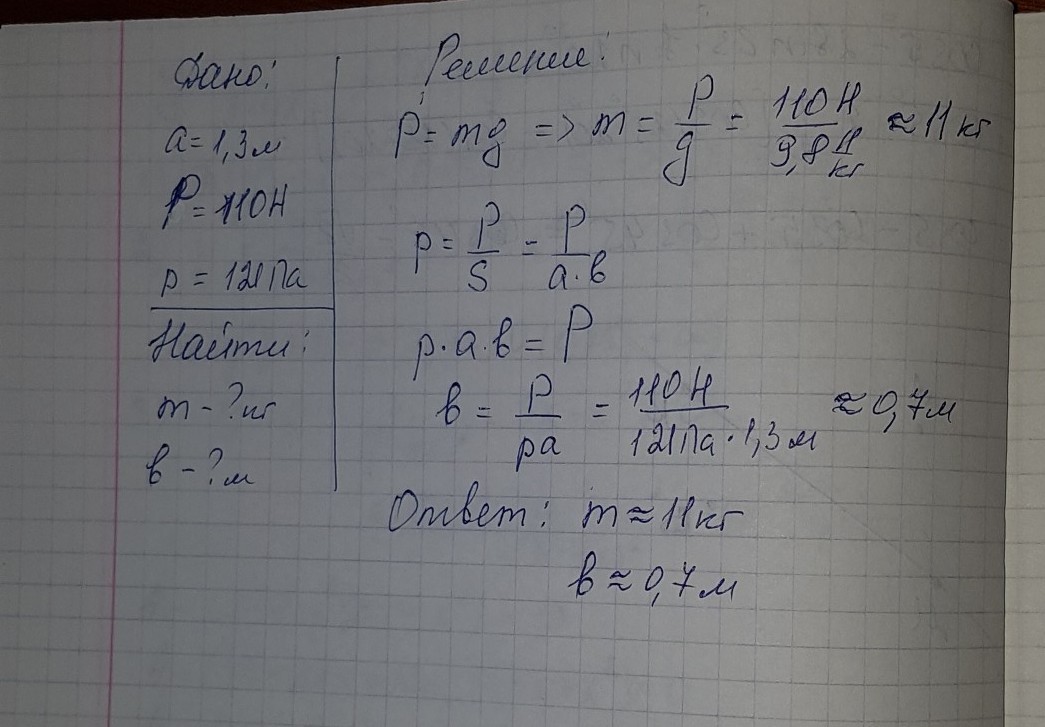 Дано:
a = 1,3 м
P = 110 Н
p = 121 Па
Найти:
m - ? кг
в - ? м
Решение:
P = mg => m = P/g = 110 Н / 9,8 Н/кг ≈ 11 кг
p = P/S = P/a·в
p·a·в = P
в = P/pa = 110 Н / 121 Па · 1,3 м ≈ 0,7 м
Ответ: m ≈ 11 кг
в ≈ 0,7 м